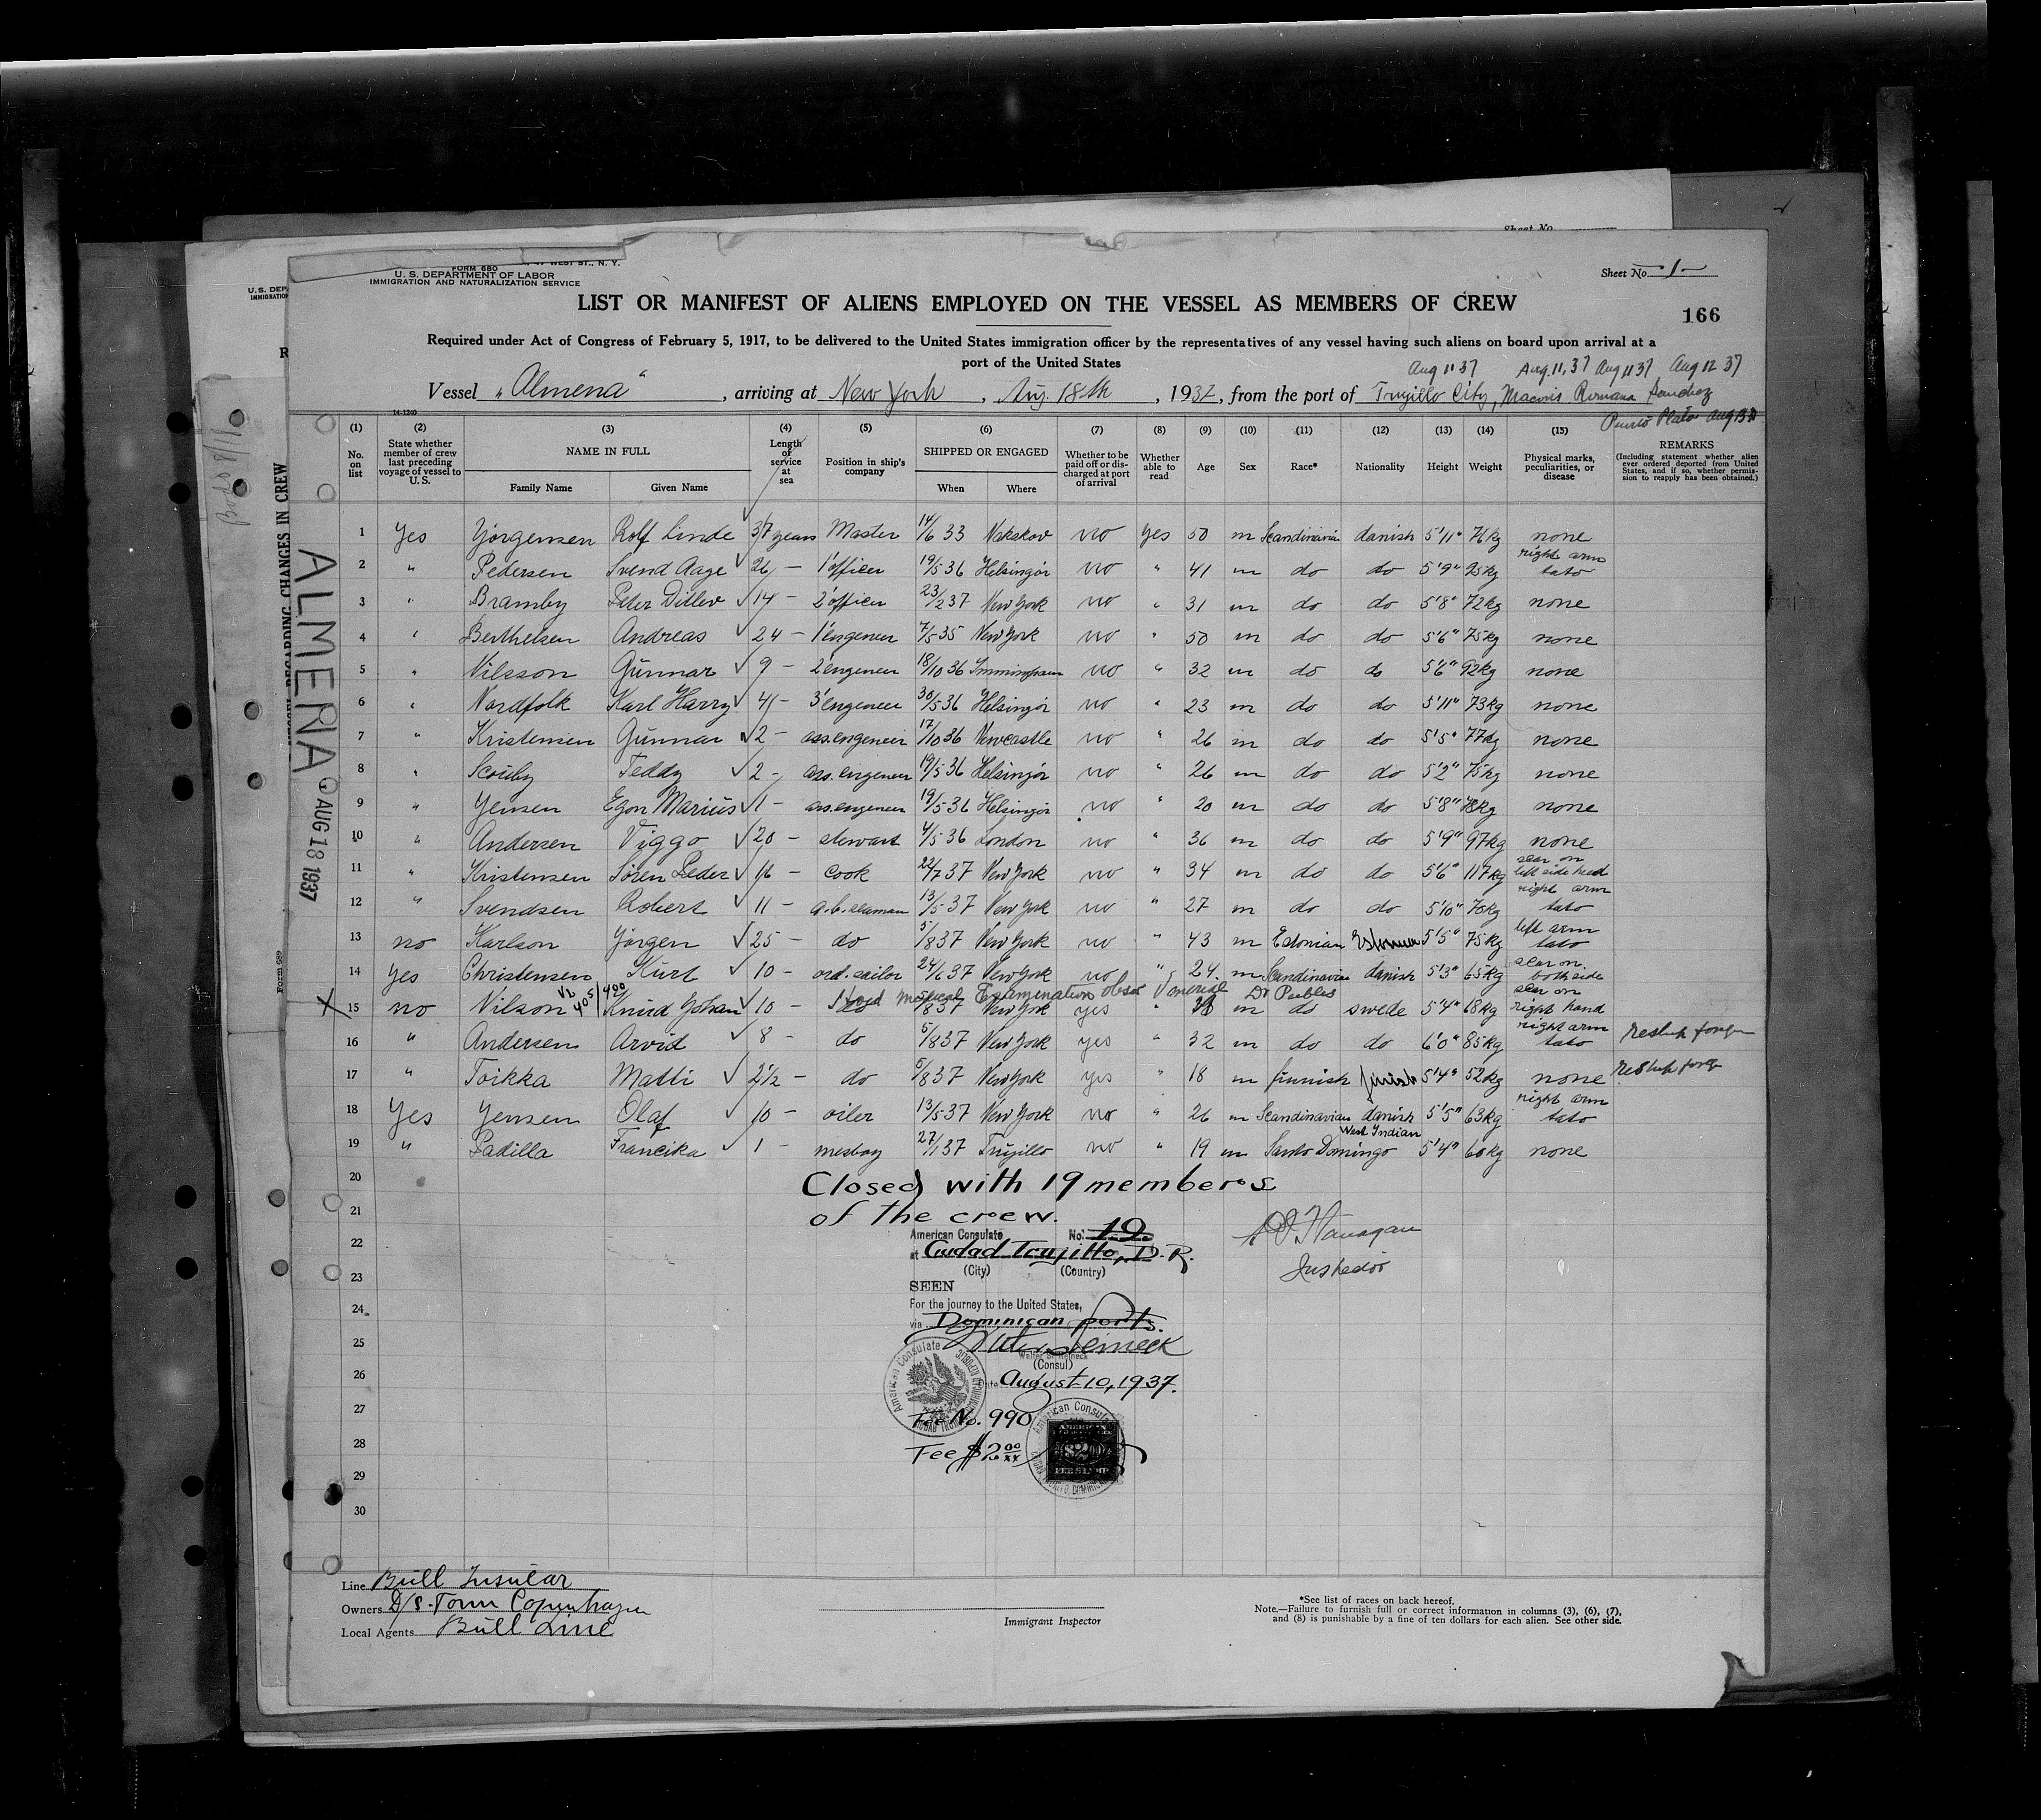 Sheet No.
FORM 680
U. S. DEPARTMENT OF LABOR
IMMIGRATION AND NATURALIZATION SERVICE
WEST ST., N. Y.
Sheet No. 1
LIST OR MANIFEST OF ALIENS EMPLOYED ON THE VESSEL AS MEMBERS OF CREW
166
Required under Act of Congress of February 5, 1917, to be delivered to the United States immigration officer by the representatives of any vessel having such aliens on board upon arrival at a
port of the United States
Aug 11 37 Aug. 11, 37 Aug 11 37 Aug 12 37
Vessel "Almena", arriving at New York, Aug. 18th, 1937, from the port of Trujillo City, Macoris Romana Sanchez
Puerto Plata Aug 13 37
14-1240
(1) (2) (3) (4) (5) (6) (7) (8) (9) (10) (11) (12) (13) (14) (15)
No. on list
State whether member of crew last preceding voyage of vessel to U.S.
NAME IN FULL
Family Name Given Name
Length of service at sea
Position in ship's company
SHIPPED OR ENGAGED
When Where
Whether to be paid off or discharged at port of arrival
Whether able to read
Age
Sex
Race*
Nationality
Height
Weight
Physical marks, peculiarities, or disease
REMARKS
(Including statement whether alien ever ordered deported from United States, and if so, whether permission to reapply has been obtained.)
1 Yes Yörgensen Rolf Linde 37 years Master 14/6 33 Nakskov no yes 50 m Scandinavia danish 5'11" 76kg none
2 " Pedersen Svend Aage 26 - 1' officer 19/5 36 Helsingör no " 41 m do do 5'9" 95kg right arm tato
3 " Bramby Peter Ditlev 14 - 2' officer 23/2 37 New York no " 31 m do do 5'8" 72kg none
4 " Berthelsen Andreas 24 - 1' engeneer 7/5 35 New York no " 50 m do do 5'6" 75kg none
5 " Nilsson Gunnar 9 - 2' engeneer 18/10 36 Immingham no " 32 m do do 5'6" 92kg none
6 " Nordfolk Karl Harry 4 - 3' engeneer 30/5 36 Helsingör no " 23 m do do 5'11" 73kg none
7 " Kristensen Gunnar 2 - ass. engeneer 17/10 36 Newcastle no " 26 m do do 5'5" 77kg none
8 " Scouby Teddy 2 - ass. engeneer 19/5 36 Helsingör no " 26 m do do 5'2" 75kg none
9 " Yensen Egon Marius 1 - ass. engeneer 19/5 36 Helsingör no " 20 m do do 5'8" 78kg none
10 " Andersen Viggo 20 - stewart 4/5 36 London no " 36 m do do 5'9" 97kg none
11 " Kristensen Sören Peder 16 - cook 22/7 37 New York no " 34 m do do 5'6" 117kg scar on left side head
12 " Svendsen Robert 11 - a.b. seaman 13/5 37 New York no " 27 m do do 5'10" 76kg right arm tato
13 no Karlson Yörgen 25 - do 5/8 37 New York no " 43 m Estonian Estonia 5'5" 75kg left arm tato
14 yes Christensen Kurt 10 - ord. sailor 24/6 37 New York no " 24. m Scandinavia danish 5'3" 65kg scar on both side
Medical Examination obser Venereal Dr Peebles
15 no Nilson Knud Yohan 10 - do 5/8 37 New York yes " m do swede 5'4" 68kg scar on right hand
16 " Andersen Arvid 8 - do 5/8 37 New York yes " 32 m do do 6'0" 85kg right arm tato
17 " Toikka Matti 2½ - do 5/8 37 New York yes " 18 m finnish finish 5'4" 52kg none
18 Yes Yensen Olaf 10 - oiler 13/5 37 New York no " 26 m Scandinavian danish 5'5" 63kg right arm tato
19 " Padilla Francika 1 - mesboy 27/1 37 Trujillo no " 19 m Santo Domingo West Indian 5'4" 60kg none
20
21
22
23
24
25
26
27
28
29
30
Closed with 19 members
of the crew.
American Consulate No. 19.
at Ciudad Trujillo, D. R.
(City) (Country)
SEEN
For the journey to the United States,
via Dominican ports.
(Consul)
August 10, 1937.
Fee No. 990
Fee $2.00
American Consulate
AMERICAN
FEE STAMP
Flanagan
Inspector
Line Bull Insular
Owners D/S. Torm Copenhagen
Local Agents Bull Line
Immigrant Inspector
*See list of races on back hereof.
Note.—Failure to furnish full or correct information in columns (3), (6), (7),
and (8) is punishable by a fine of ten dollars for each alien. See other side.
ALMENA
AUG 18 1937
CHANGES IN CREW
Form 689